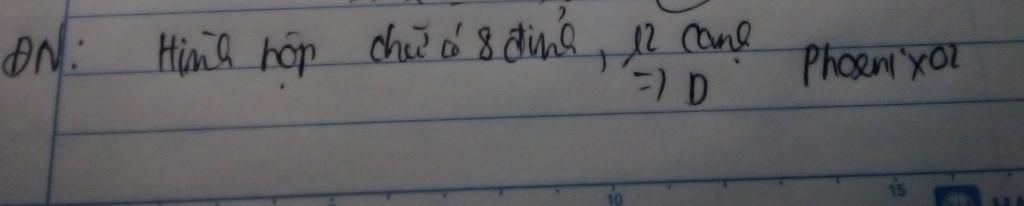 ĐN: Hình hộp chữ có 8 đỉnh, 12 cạnh
=> D
Phoenix02
10
15